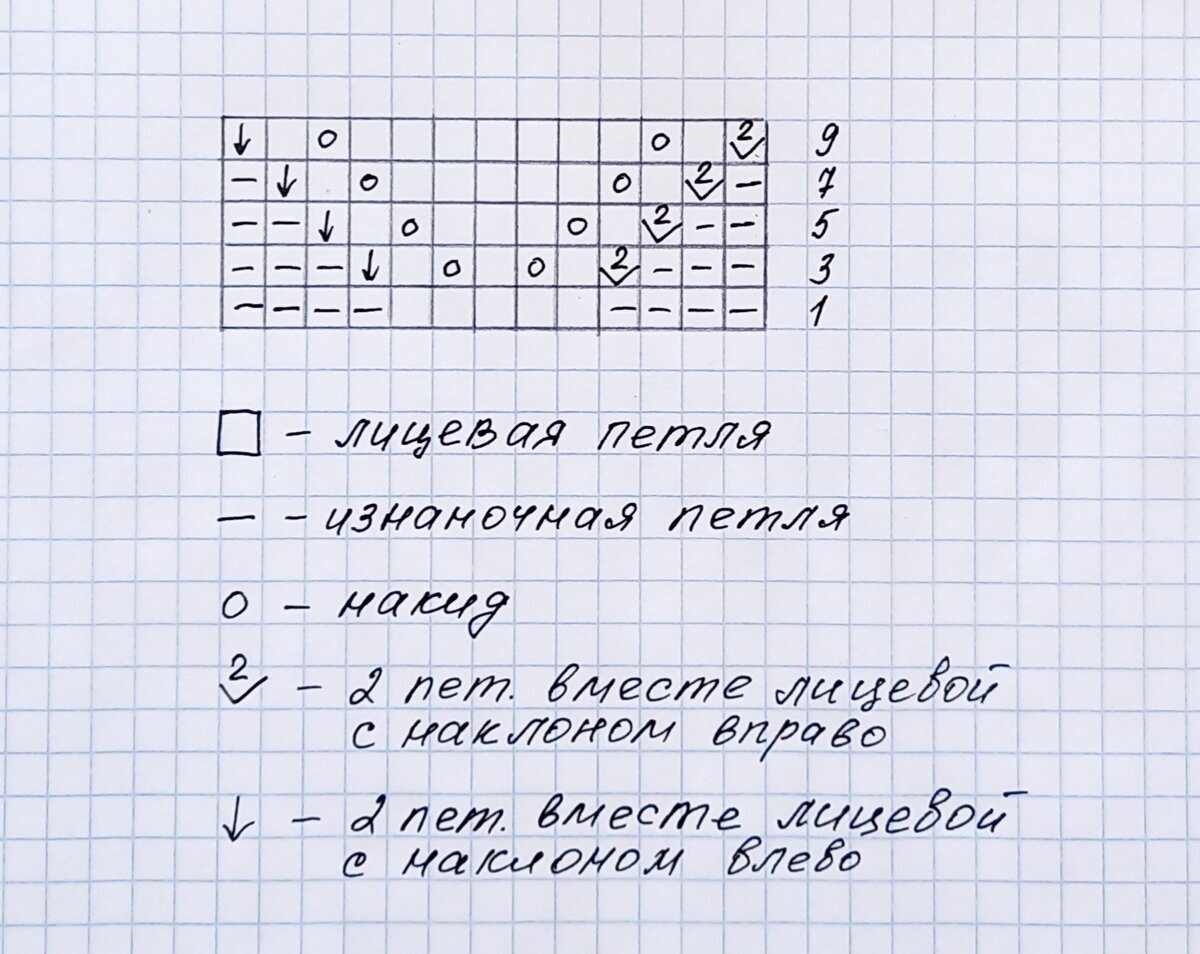 ↓ o o 2 9
– ↓ o o 2 – 7
– – ↓ o o 2 – – 5
– – – ↓ o o 2 – – – 3
– – – – – – – – 1
– лицевая петля
– – изнаночная петля
o – накид
2 – 2 пет. вместе лицевой
с наклоном вправо
↓ – 2 пет. вместе лицевой
с наклоном влево